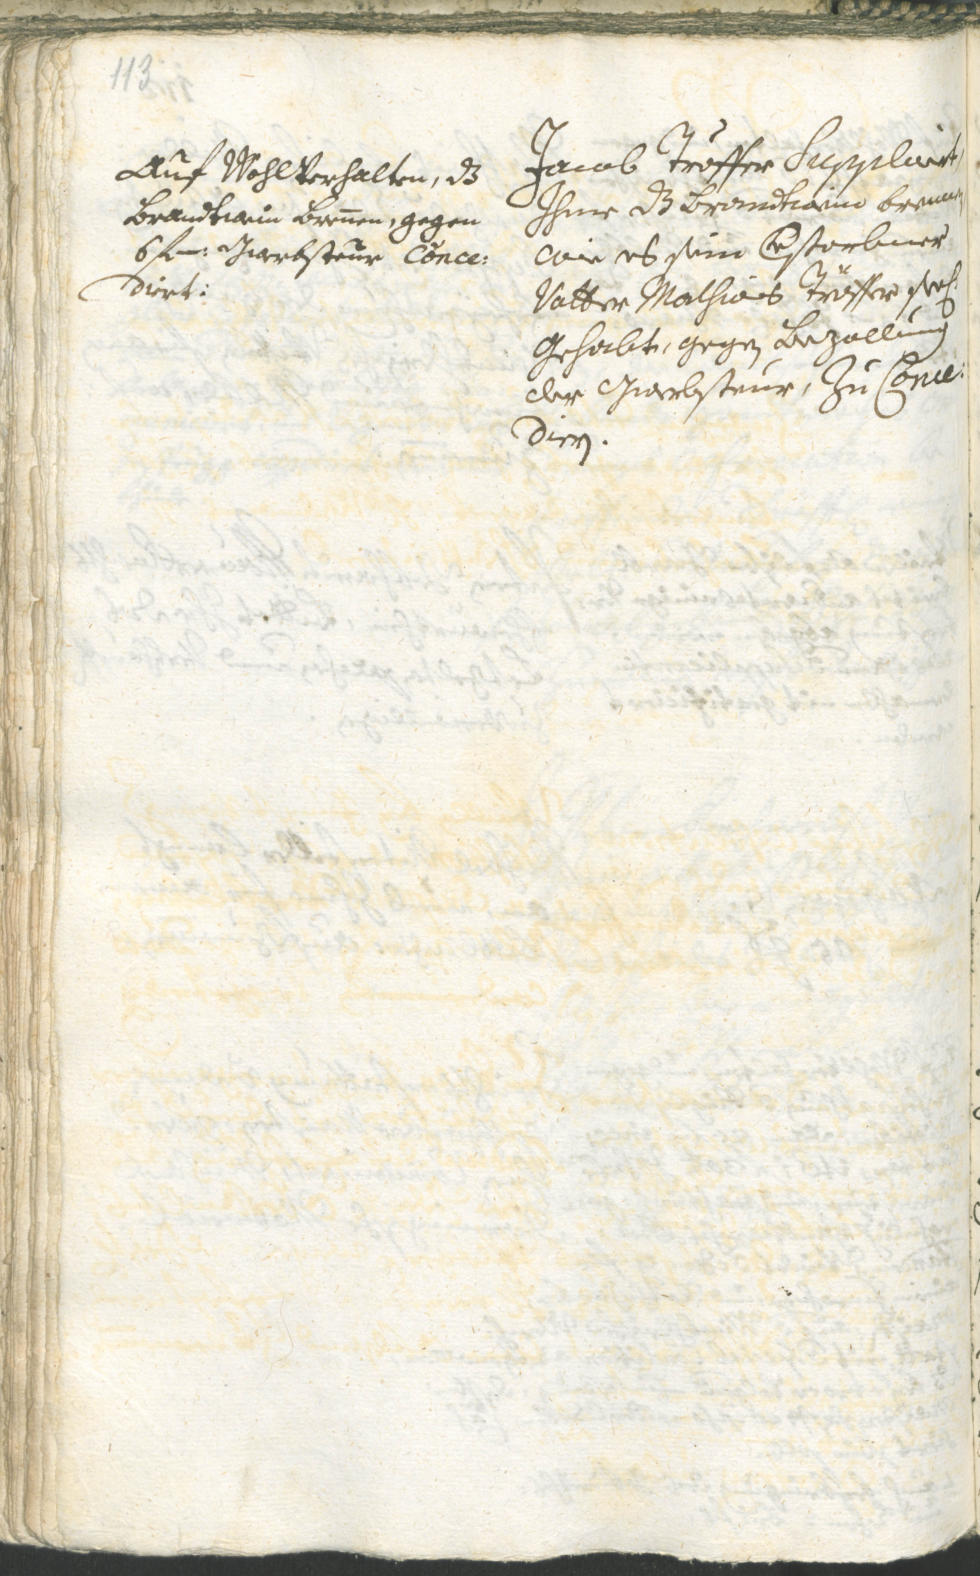 113
Auf Wohl Verhalten, dz
Brandtwein Brennen, gegen
6 fl: Gwerbsteur Conce:
diert:
Jacob Tröffer Suppliciert,
Ihme dz Brandtwein brennen,
wie es sein Verstorbner
Vatter Mathias Tröffer seel:
Gehabt, gegen Bezallung
der Gwerbsteur, Zu Conce:
dieren.